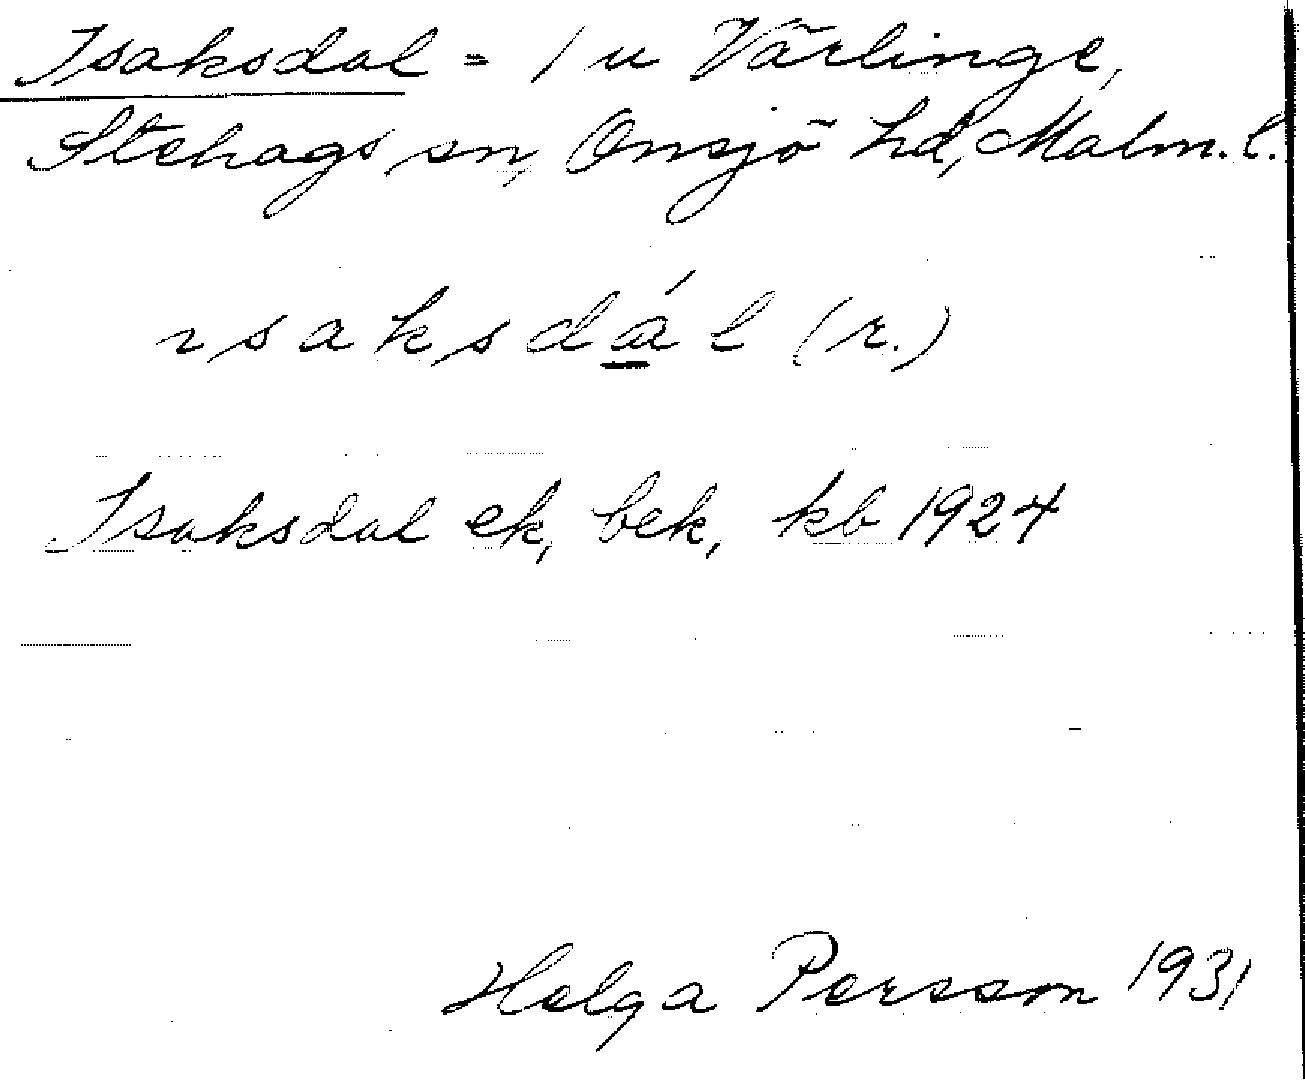 Isaksdal = 1 u Värlinge,
Stehags sn, Onsjö hd, Malm. l.
ısaksdál (r.)
Isaksdal ek, bek, kb 1924
Helga Persson 1931